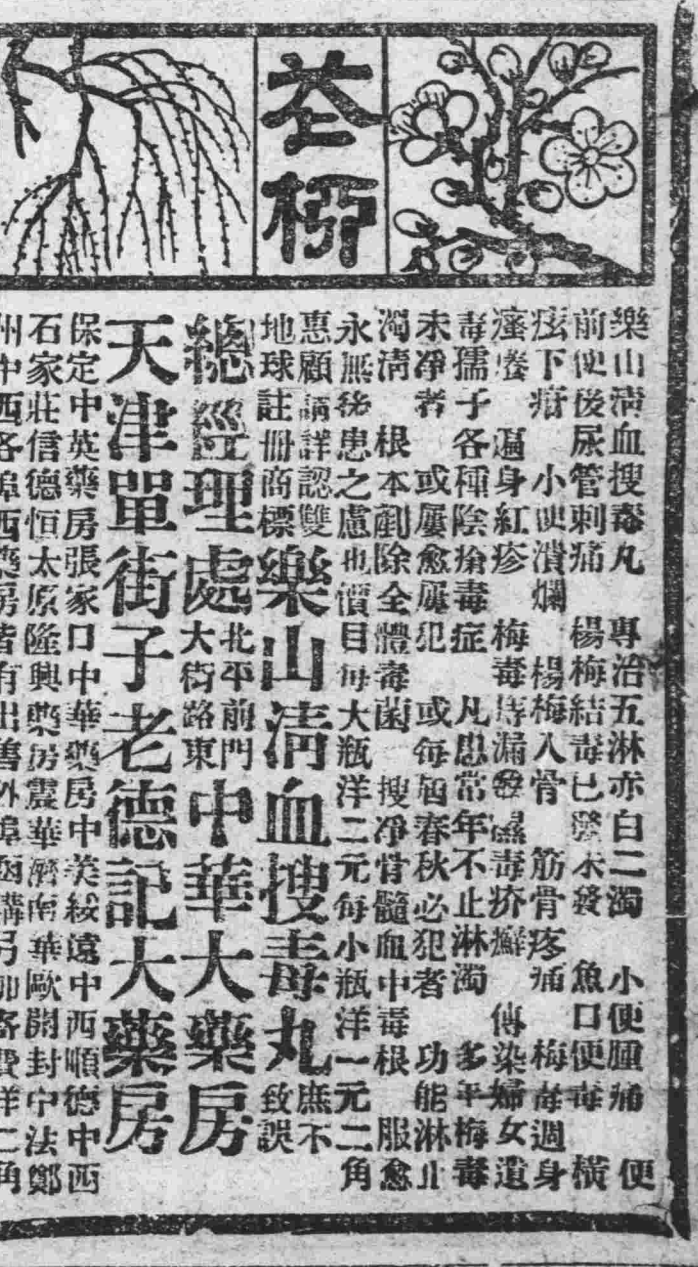 花柳
樂山清血搜毒丸　專治五淋赤白二濁　小便腫痛　便
前便後尿管刺痛　楊梅結毒已發未發　魚口便毒　橫
痃下疳　小便潰爛　楊梅入骨　筋骨疼痛　梅毒週身
遍身紅疹　梅毒痔漏發濕毒疥癬　傳染婦女遺
毒孺子各種陰瘡毒症　凡患常年不止淋濁　多年梅毒
未净者　或屢愈屢犯　或每逢春秋必犯者　功能淋止
濁清　根本剷除全體毒菌　搜净骨髓血中毒根　服愈
永無後患之慮也價目每大瓶洋二元每小瓶洋一元二角
惠顧請詳認雙
地球註冊商標
樂山清血搜毒丸
庶不
致誤
總經理處
北平前門
大街路東
中華大藥房
天津單街子老德記大藥房
保定中英藥房張家口中華藥房中美綏遠中西順德中西
石家莊信德恒太原隆興藥房震華濟南華歐開封中法鄭
州中西各埠西藥房皆有出售外埠函購另加寄費洋二角